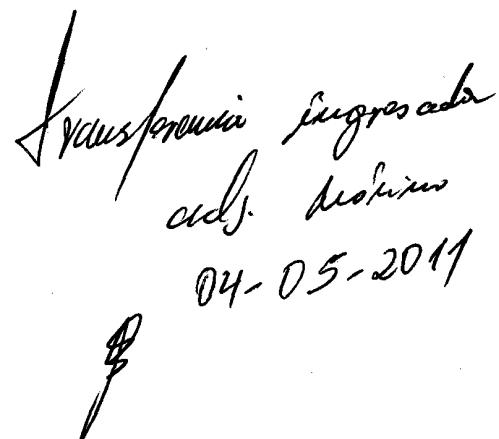 transferencia ingresada
adj.
04-05-2011